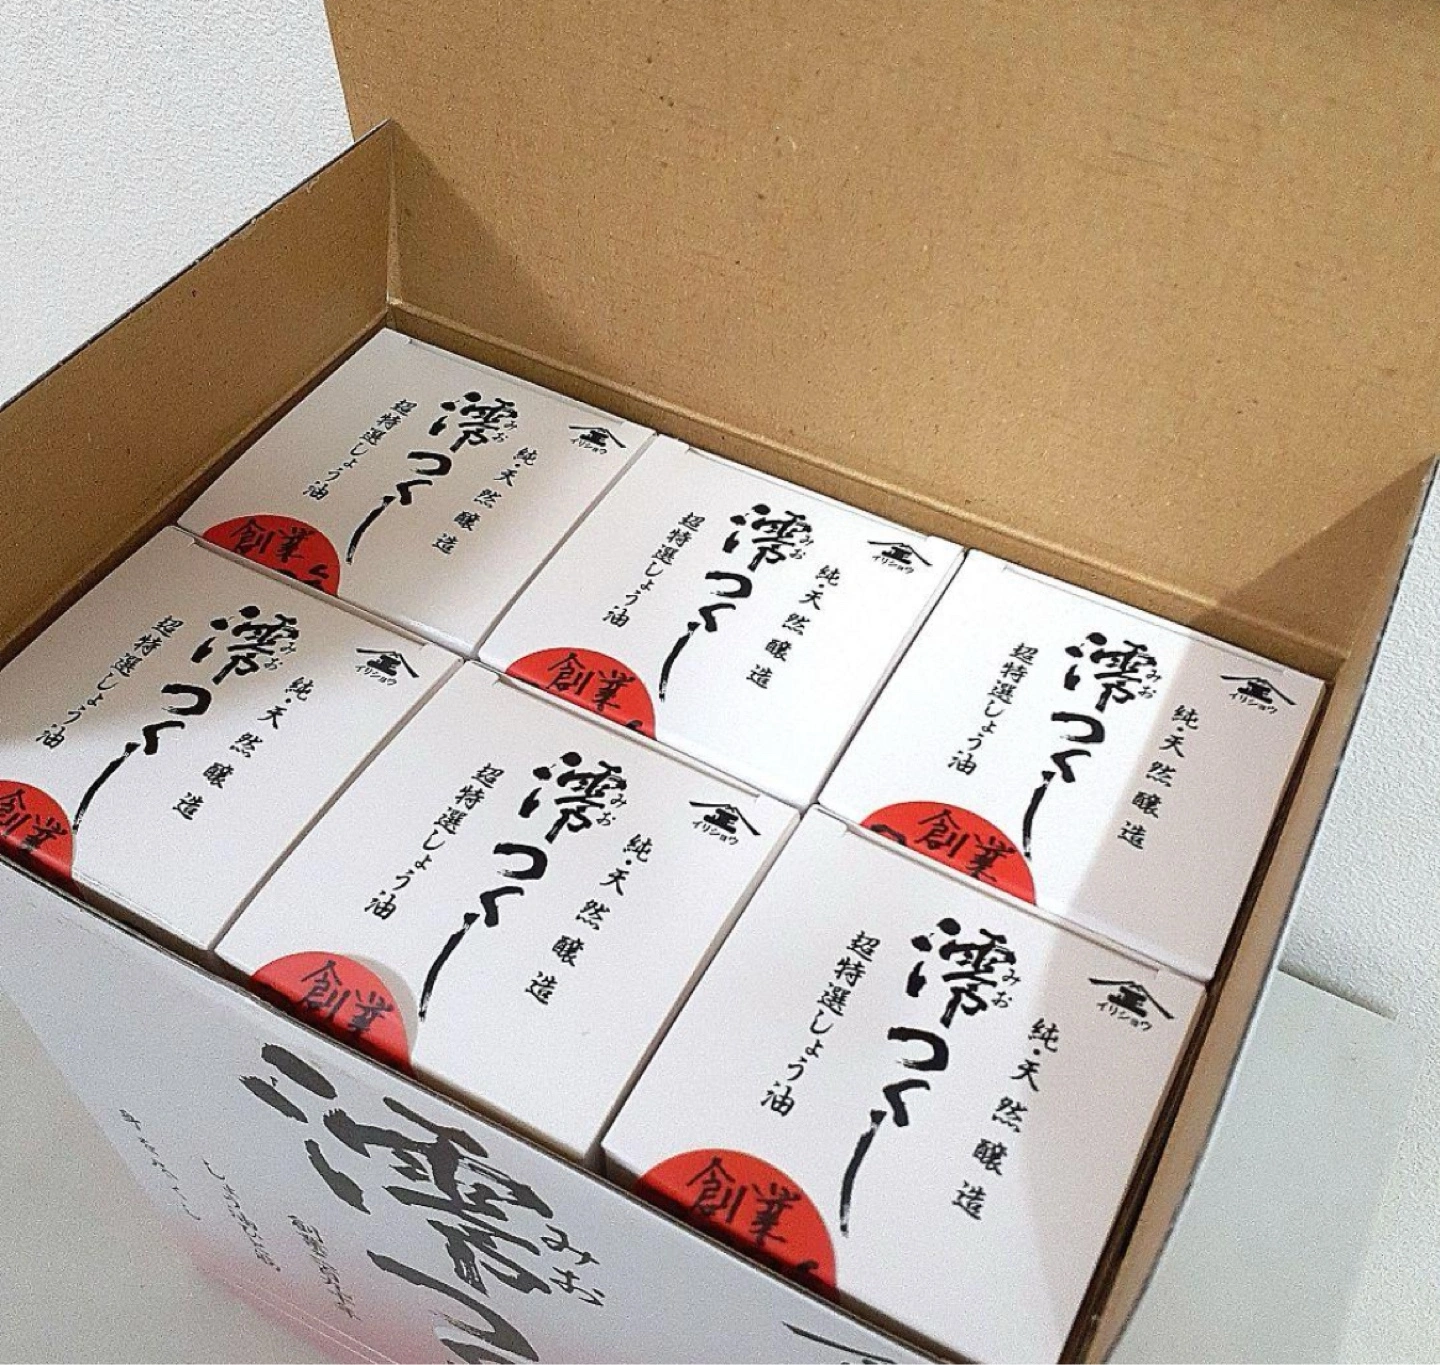 イリショウ
純・天然醸造
みお
澪つくし
超特選しょう油
創業
イリショウ
純・天然醸造
みお
澪つくし
超特選しょう油
創業
イリショウ
純・天然醸造
みお
澪つくし
超特選しょう油
創業
イリショウ
純・天然醸造
みお
澪つくし
超特選しょう油
創業
イリショウ
純・天然醸造
みお
澪つくし
超特選しょう油
創業
イリショウ
純・天然醸造
みお
澪つくし
超特選しょう油
創業
みお
澪つ